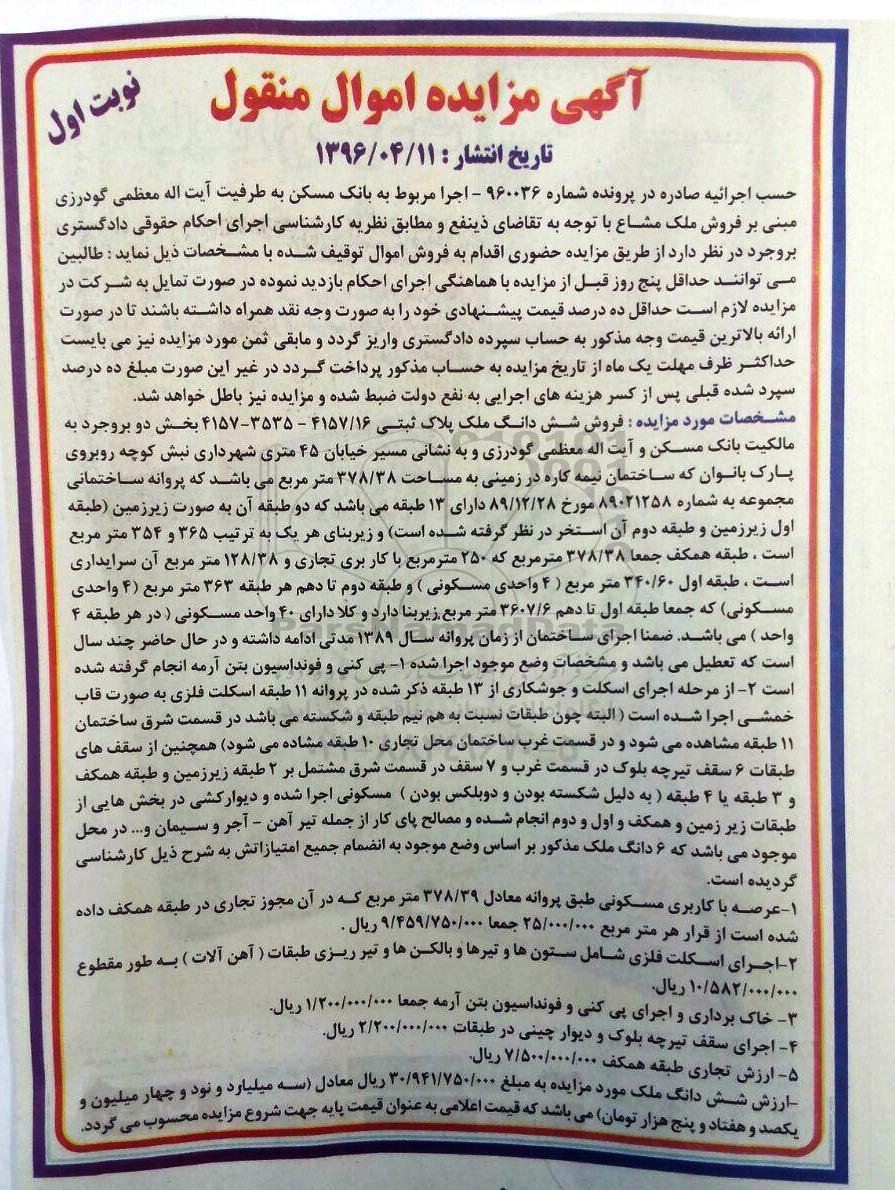 آگهی مزایده اموال منقول
نوبت اول
تاریخ انتشار : ۱۳۹۶/۰۴/۱۱
حسب اجرائیه صادره در پرونده شماره ۹۶۰۰۳۶ - اجرا مربوط به بانک مسکن به طرفیت آیت اله معظمی گودرزی
مبنی بر فروش ملک مشاع با توجه به تقاضای ذینفع و مطابق نظریه کارشناسی اجرای احکام حقوقی دادگستری
بروجرد در نظر دارد از طریق مزایده حضوری اقدام به فروش اموال توقیف شده با مشخصات ذیل نماید : طالبین
می توانند حداقل پنج روز قبل از مزایده با هماهنگی اجرای احکام بازدید نموده در صورت تمایل به شرکت در
مزایده لازم است حداقل ده درصد قیمت پیشنهادی خود را به صورت وجه نقد همراه داشته باشند تا در صورت
ارائه بالاترین قیمت وجه مذکور به حساب سپرده دادگستری واریز گردد و مابقی ثمن مورد مزایده نیز می بایست
حداکثر ظرف مهلت یک ماه از تاریخ مزایده به حساب مذکور پرداخت گردد در غیر این صورت مبلغ ده درصد
سپرد شده قبلی پس از کسر هزینه های اجرایی به نفع دولت ضبط شده و مزایده نیز باطل خواهد شد.
مشخصات مورد مزایده : فروش شش دانگ ملک پلاک ثبتی ۴۱۵۷/۱۶ - ۳۵۳۵-۴۱۵۷ بخش دو بروجرد به
مالکیت بانک مسکن و آیت اله معظمی گودرزی و به نشانی مسیر خیابان ۴۵ متری شهرداری نبش کوچه روبروی
پارک بانوان که ساختمان نیمه کاره در زمینی به مساحت ۳۷۸/۳۸ متر مربع می باشد که پروانه ساختمانی
مجموعه به شماره ۸۹۰۲۱۲۵۸ مورخ ۸۹/۱۲/۲۸ دارای ۱۳ طبقه می باشد که دو طبقه آن به صورت زیرزمین (طبقه
اول زیرزمین و طبقه دوم آن استخر در نظر گرفته شده است) و زیربنای هر یک به ترتیب ۳۶۵ و ۳۵۴ متر مربع
است ، طبقه همکف جمعا ۳۷۸/۳۸ مترمربع که ۲۵۰ مترمربع با کار بری تجاری و ۱۲۸/۳۸ متر مربع آن سرایداری
است ، طبقه اول ۳۴۰/۶۰ متر مربع ( ۴ واحدی مسکونی ) و طبقه دوم تا دهم هر طبقه ۳۶۳ متر مربع (۴ واحدی
مسکونی) که جمعا طبقه اول تا دهم ۳۶۰۷/۶ متر مربع زیربنا دارد و کلا دارای ۴۰ واحد مسکونی ( در هر طبقه ۴
واحد ) می باشد. ضمنا اجرای ساختمان از زمان پروانه سال ۱۳۸۹ مدتی ادامه داشته و در حال حاضر چند سال
است که تعطیل می باشد و مشخصات وضع موجود اجرا شده ۱- پی کنی و فونداسیون بتن آرمه انجام گرفته شده
است ۲- از مرحله اجرای اسکلت و جوشکاری از ۱۳ طبقه ذکر شده در پروانه ۱۱ طبقه اسکلت فلزی به صورت قاب
خمشی اجرا شده است ( البته چون طبقات نسبت به هم نیم طبقه و شکسته می باشد در قسمت شرق ساختمان
۱۱ طبقه مشاهده می شود و در قسمت غرب ساختمان محل تجاری ۱۰ طبقه مشاده می شود) همچنین از سقف های
طبقات ۶ سقف تیرچه بلوک در قسمت غرب و ۷ سقف در قسمت شرق مشتمل بر ۲ طبقه زیرزمین و طبقه همکف
و ۳ طبقه یا ۴ طبقه ( به دلیل شکسته بودن و دوبلکس بودن ) مسکونی اجرا شده و دیوارکشی در بخش هایی از
طبقات زیر زمین و همکف و اول و دوم انجام شده و مصالح پای کار از جمله تیر آهن - آجر و سیمان و... در محل
موجود می باشد که ۶ دانگ ملک مذکور بر اساس وضع موجود به انضمام جمیع امتیازاتش به شرح ذیل کارشناسی
گردیده است.
۱-عرصه با کاربری مسکونی طبق پروانه معادل ۳۷۸/۳۹ متر مربع که در آن مجوز تجاری در طبقه همکف داده
شده است از قرار هر متر مربع ۲۵/۰۰۰/۰۰۰ جمعا ۹/۴۵۹/۷۵۰/۰۰۰ ریال .
۲-اجرای اسکلت فلزی شامل ستون ها و تیرها و بالکن ها و تیر ریزی طبقات ( آهن آلات ) به طور مقطوع
۱۰/۵۸۲/۰۰۰/۰۰۰ ریال.
۳- خاک برداری و اجرای پی کنی و فونداسیون بتن آرمه جمعا ۱/۲۰۰/۰۰۰/۰۰۰ ریال.
۴- اجرای سقف تیرچه بلوک و دیوار چینی در طبقات ۲/۲۰۰/۰۰۰/۰۰۰ ریال.
۵- ارزش تجاری طبقه همکف ۷/۵۰۰/۰۰۰/۰۰۰ ریال.
-ارزش شش دانگ ملک مورد مزایده به مبلغ ۳۰/۹۴۱/۷۵۰/۰۰۰ ریال معادل (سه میلیارد و نود و چهار میلیون و
یکصد و هفتاد و پنج هزار تومان) می باشد که قیمت اعلامی به عنوان قیمت پایه جهت شروع مزایده محسوب می گردد.